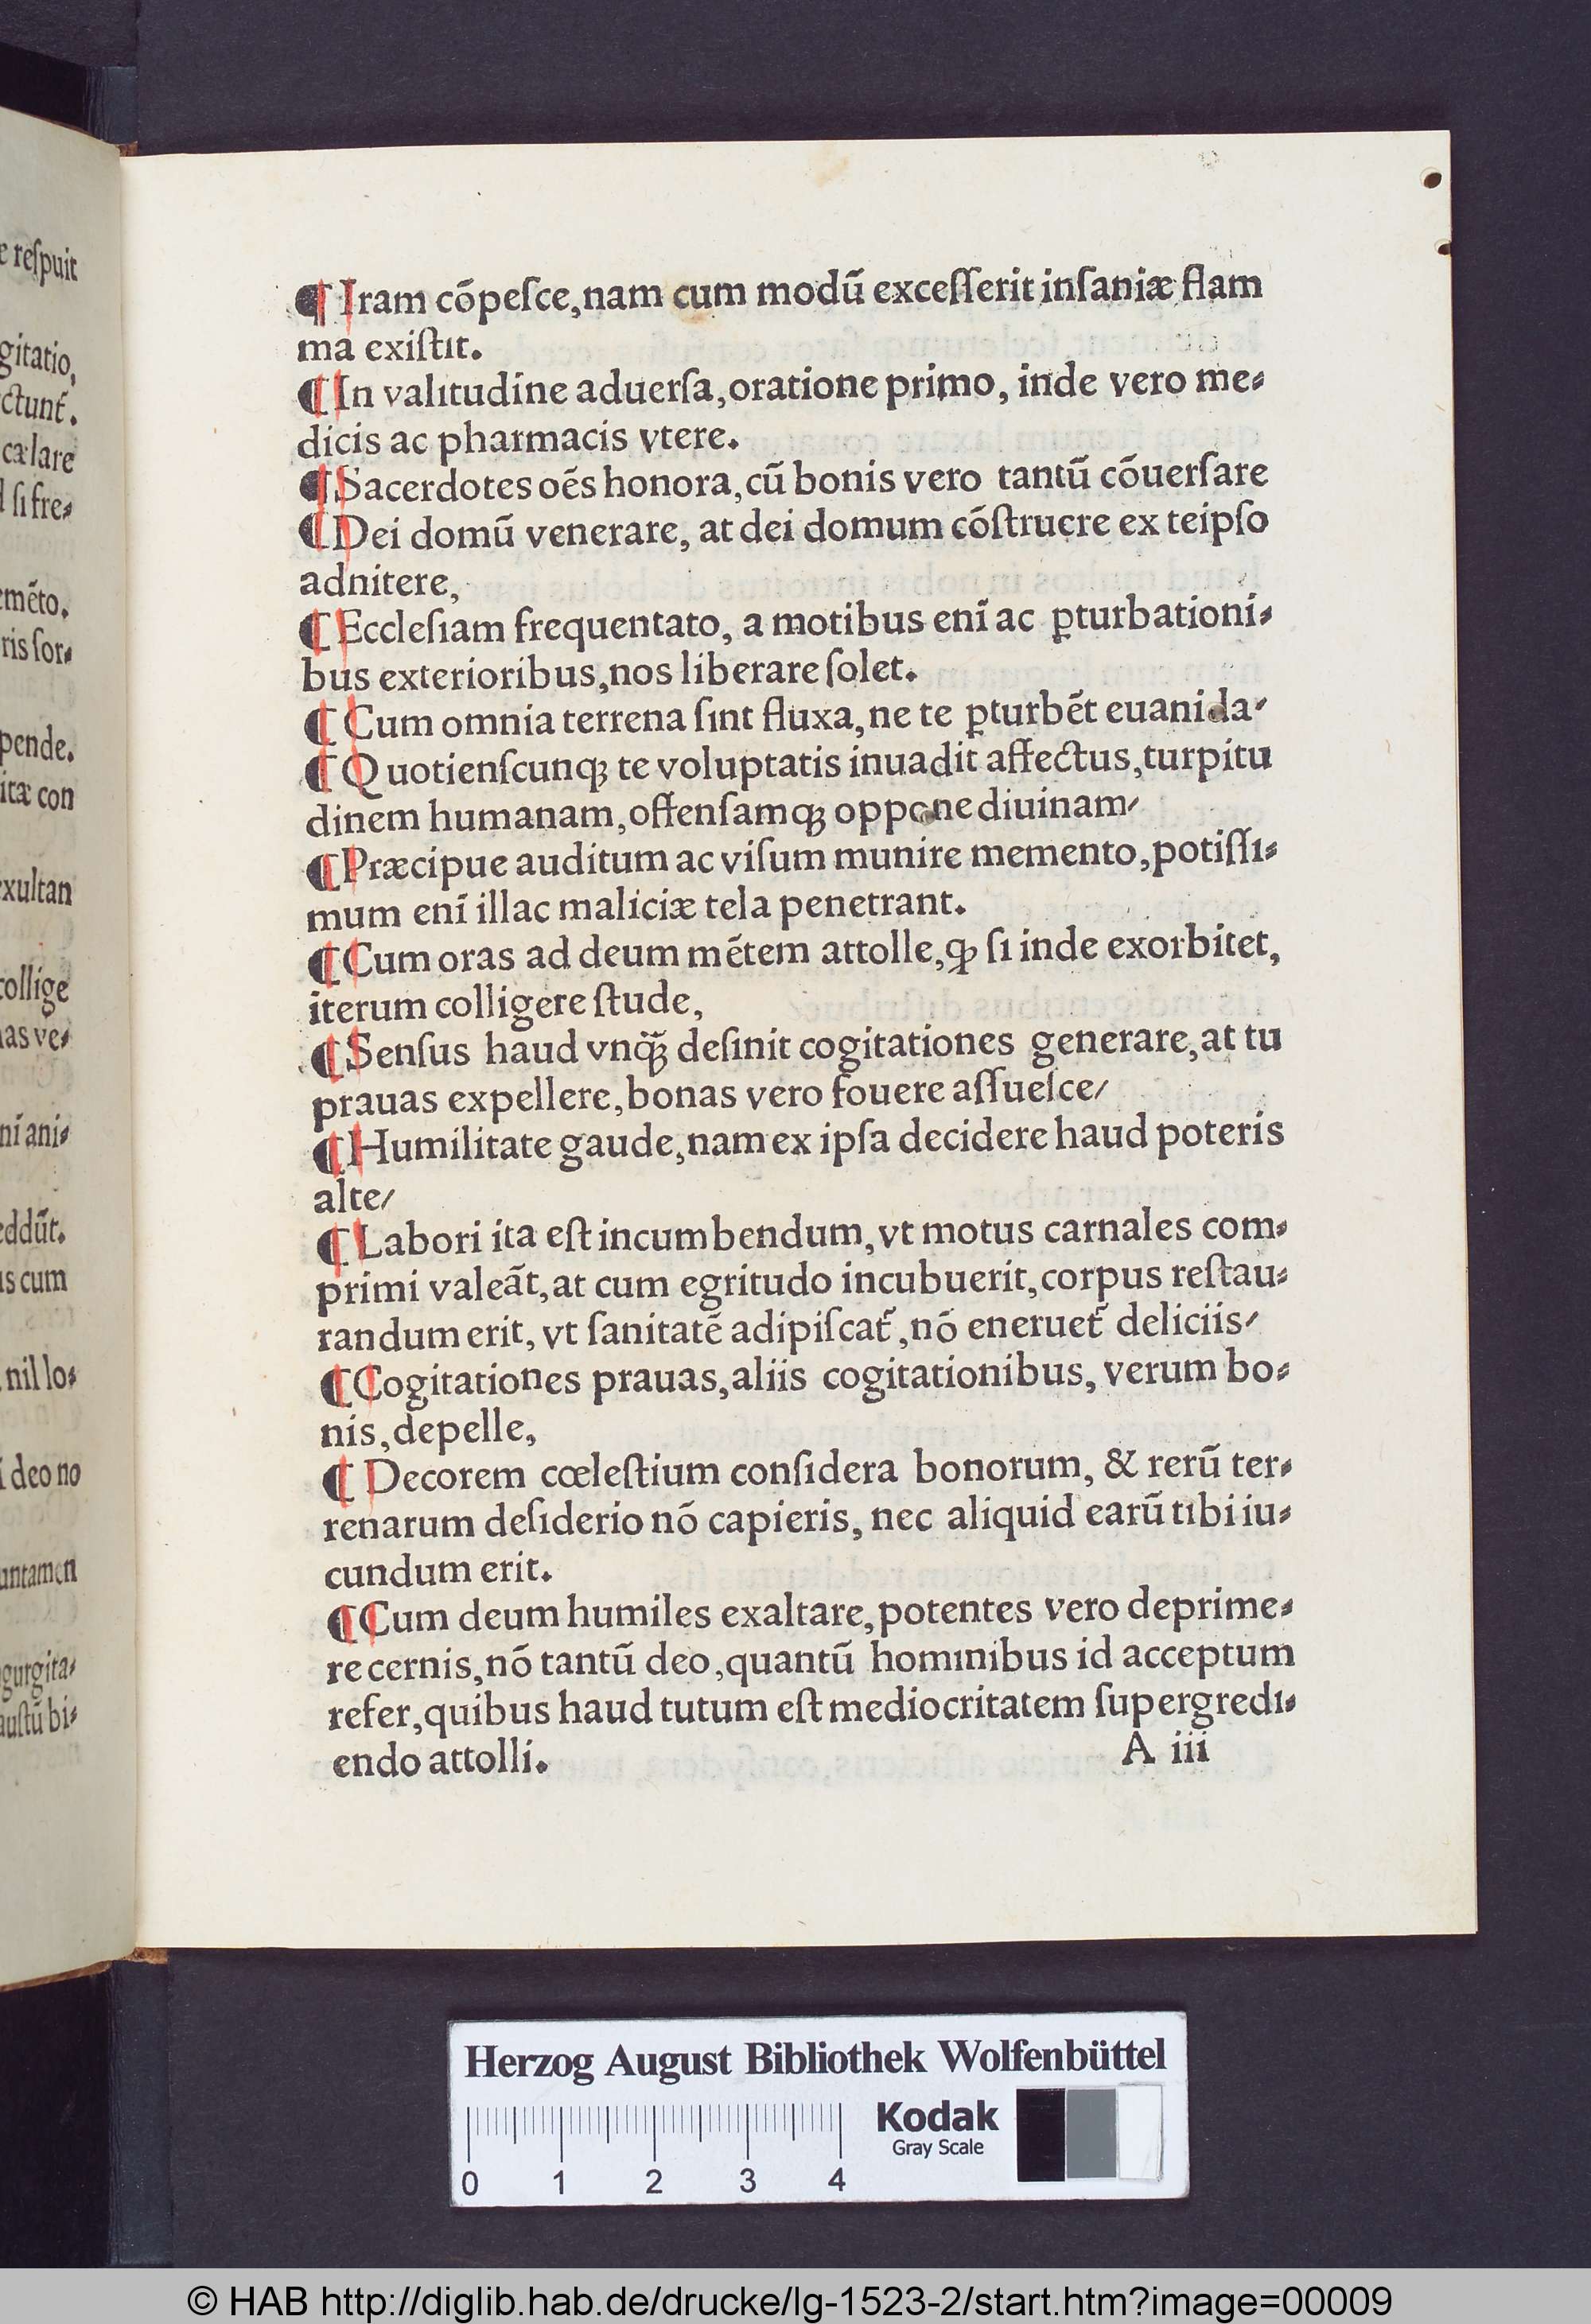 e reſpuit
gitatio,
ctunt̃.
cælare
d ſi fre⸗
emẽto.
ris ſor⸗
pende.
itæ con
exultan
collige
nas ve⸗
ni ani⸗
eddũt.
us cum
nil lo⸗
i deo no
untamen
gurgita⸗
auſtũ bi⸗
¶ Iram cõpeſce, nam cum modũ exceſſerit inſaniæ flam
ma exiſtit.
¶ In valitudine aduerſa, oratione primo, inde vero me⸗
dicis ac pharmacis vtere.
¶ Sacerdotes oẽs honora, cũ bonis vero tantũ cõuerſare
¶ Dei domũ venerare, at dei domum cõſtruere ex teipſo
adnitere,
¶ Eccleſiam frequentato, a motibus enĩ ac ꝑturbationi⸗
bus exterioribus, nos liberare ſolet.
¶ Cum omnia terrena ſint fluxa, ne te ꝑturbẽt euanida/
¶ Quotienſcunqꝫ te voluptatis inuadit affectus, turpitu
dinem humanam, offenſamqꝫ oppone diuinam/
¶ Præcipue auditum ac viſum munire memento, potiſſi⸗
mum enĩ illac maliciæ tela penetrant.
¶ Cum oras ad deum mẽtem attolle, ꝙ ſi inde exorbitet,
iterum colligere ſtude,
¶ Senſus haud vnqꝫ̃ deſinit cogitationes generare, at tu
prauas expellere, bonas vero fouere aſſueſce/
¶ Humilitate gaude, nam ex ipſa decidere haud poteris
alte/
¶ Labori ita eſt incumbendum, vt motus carnales com⸗
primi valeãt, at cum egritudo incubuerit, corpus reſtau⸗
randum erit, vt ſanitatẽ adipiſcat̃, nõ eneruet̃ deliciis/
¶ Cogitationes prauas, aliis cogitationibus, verum bo⸗
nis, depelle,
¶ Decorem cœleſtium conſidera bonorum, & rerũ ter⸗
renarum deſiderio nõ capieris, nec aliquid earũ tibi iu⸗
cundum erit.
¶ Cum deum humiles exaltare, potentes vero deprime⸗
re cernis, nõ tantũ deo, quantũ hominibus id acceptum
refer, quibus haud tutum eſt mediocritatem ſupergredi⸗
endo attolli.
A iii
Herzog August Bibliothek Wolfenbüttel
Kodak
Gray Scale
0 1 2 3 4
© HAB http://diglib.hab.de/drucke/lg-1523-2/start.htm?image=00009